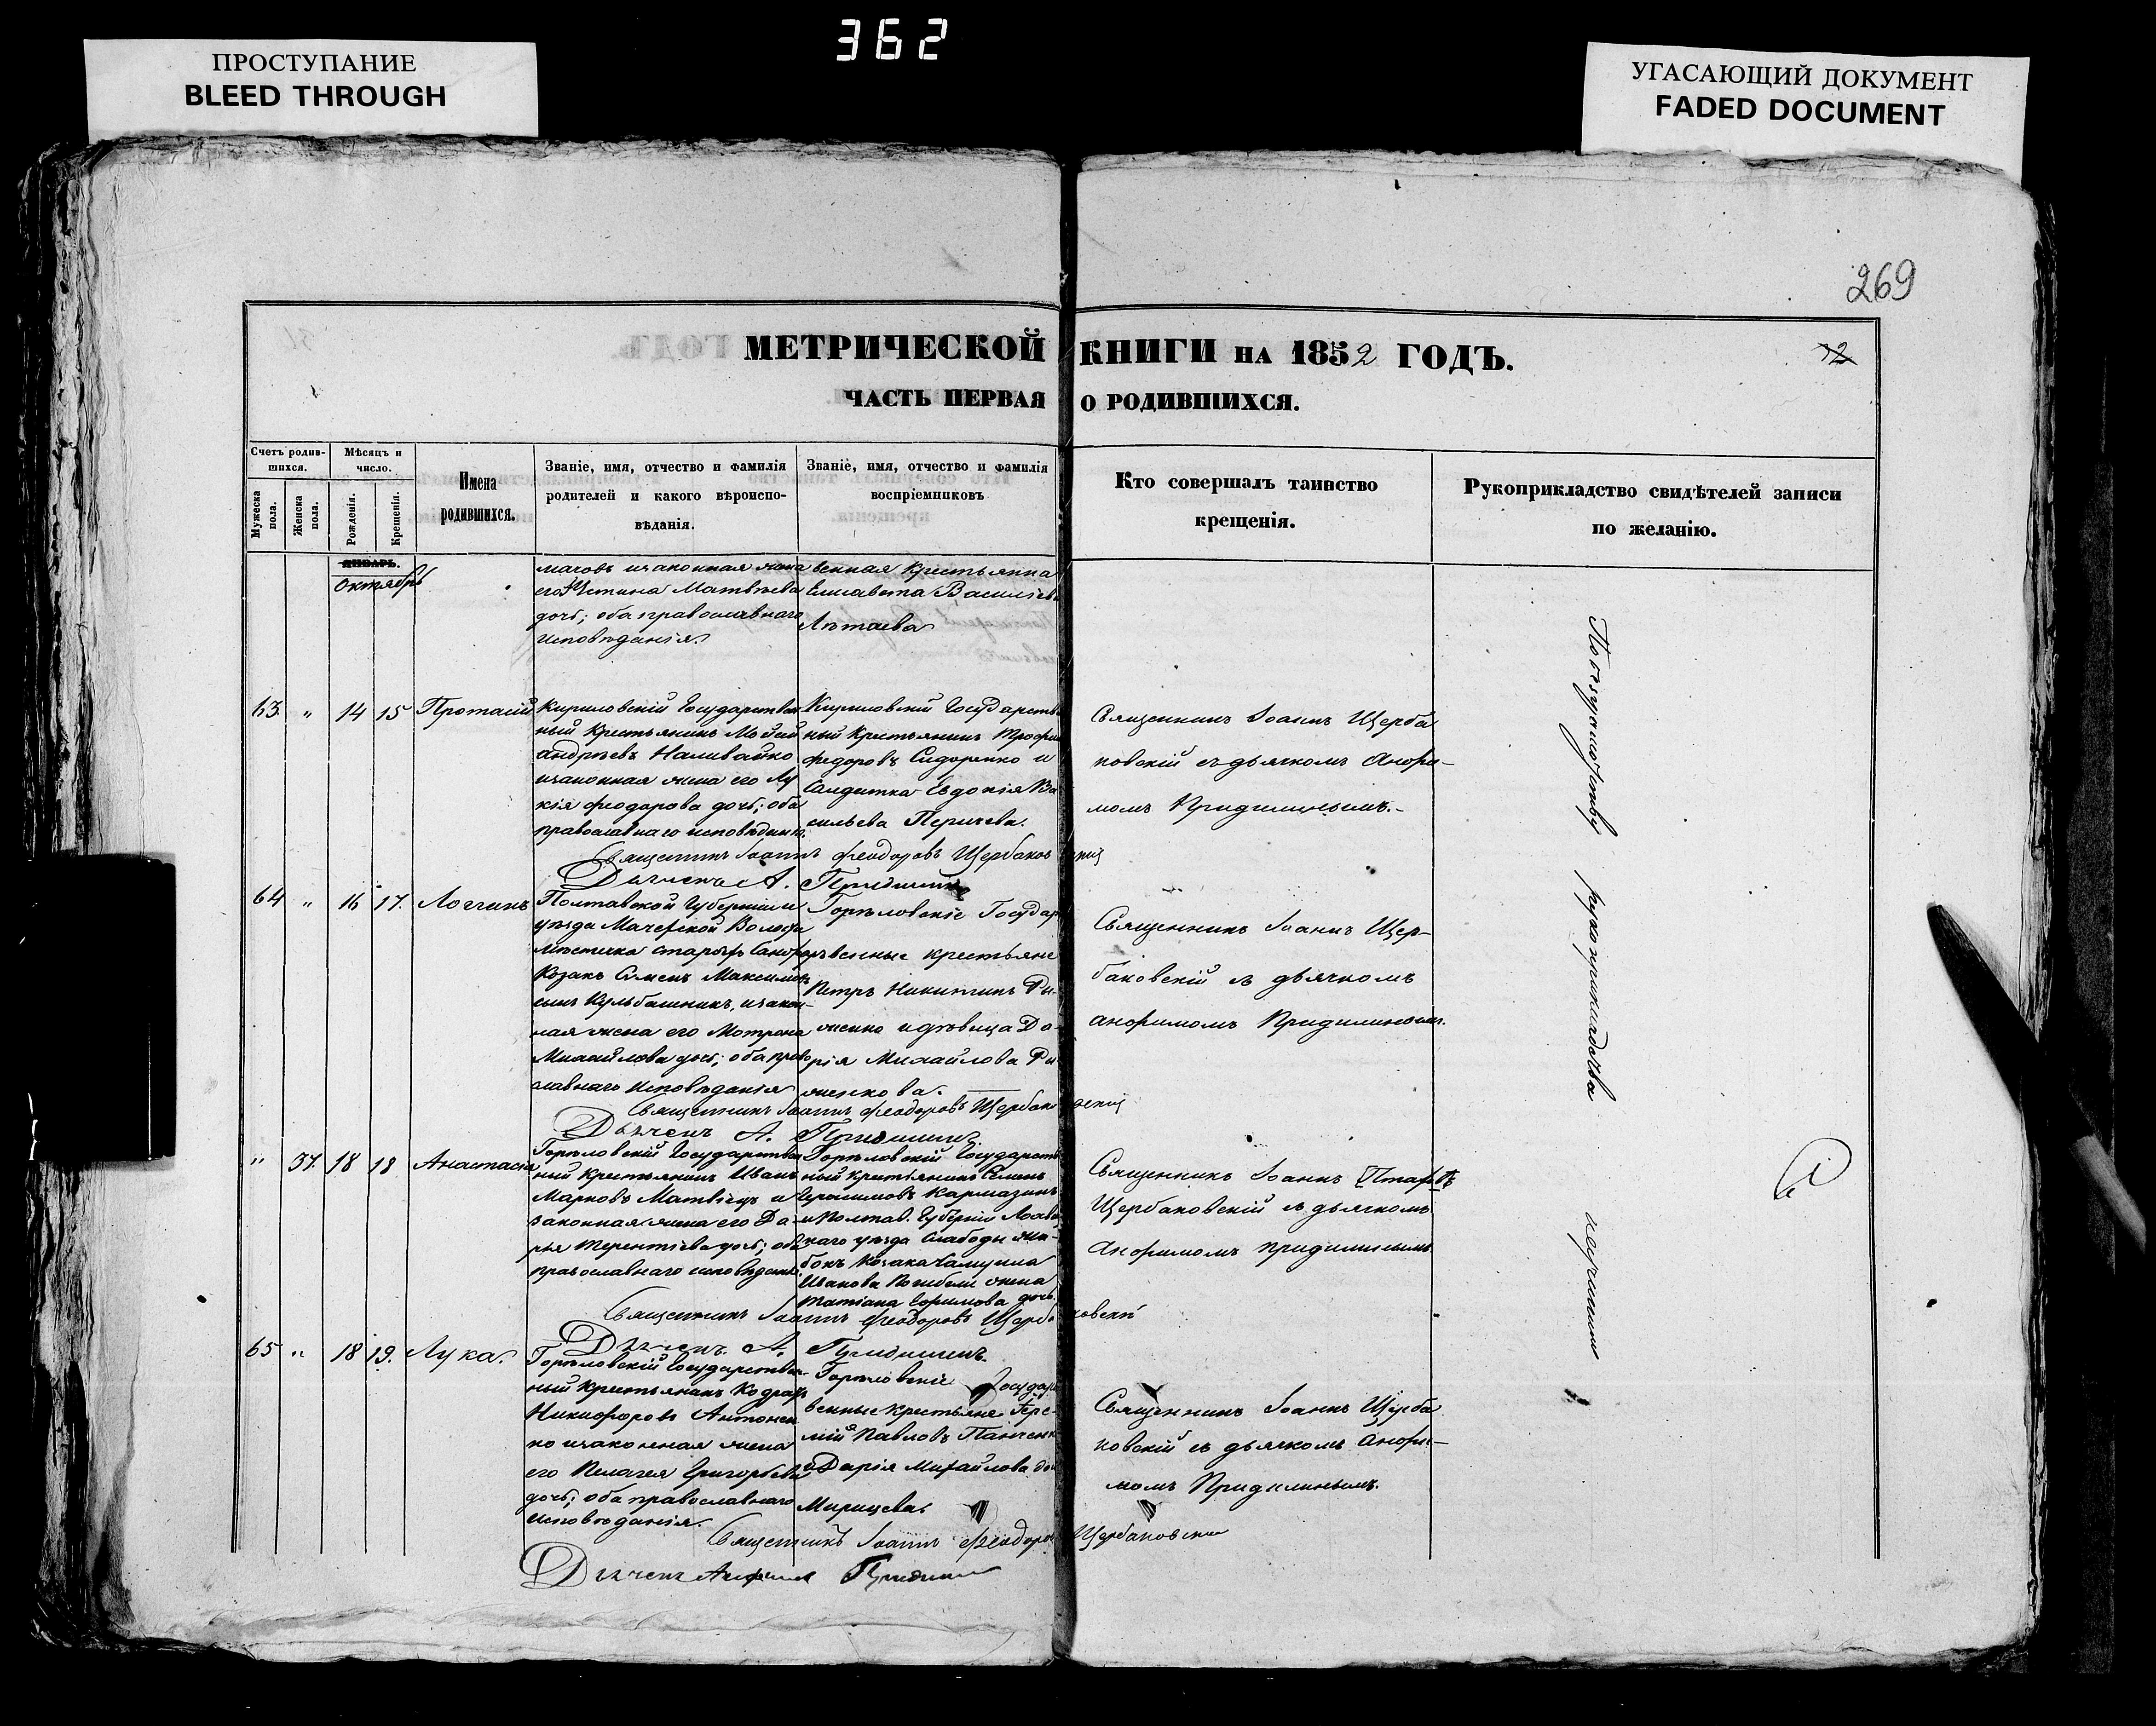 362
ПРОСТУПАНИЕ
BLEED THROUGH
УГАСАЮЩИЙ ДОКУМЕНТ
FADED DOCUMENT
269
МЕТРИЧЕСКОЙ КНИГИ НА 1852 ГОДЪ.
12
ЧАСТЬ ПЕРВАЯ О РОДИВШИХСЯ.
Счетъ родив-
шихся.
Мужеска
пола.
Женска
пола.
Мѣсяцъ и
число.
Рожденія.
Крещенія.
Имена
родившихся.
Званіе, имя, отчество и фамилія
родителей и какого вѣроиспо-
вѣданія.
Званіе, имя, отчество и фамилія
воспріемниковъ
Кто совершалъ таинство
крещенія.
Рукоприкладство свидѣтелей записи
по желанію.
ЯНВАРЬ.
Октябрь
законная жена
его Устина Матвѣева
дочь; оба православнаго
исповѣданія.
венная Крестьянка
Елисавета Василіева
63 " 14 15 Протасій
Кириловскій Государствен
ный Крестьянинъ Мойсей
Андреевъ Наливайко
изаконная жена его Лу
кія Феодорова дочь; оба
православнаго исповѣданія.
Кириловскій Государстве
ный Крестьянинъ Трофим
Федоровъ Сидоренко и
Солдатка Евдокія Ва
сильева
Священникъ Іоаннъ Щерба
ковскій съ дьячкомъ Анфи-
момъ Придилинымъ.-
Священникъ Іоаннъ Феодоровъ Щербаковскій
Дьячекъ А. Придилинъ
64 " 16 17. Логгинъ
Полтавской Губерніи
уезда Волости
мѣстечка
Козакъ Семенъ Максимовъ
сынъ изакон-
ная жена его Мотрона
Михайлова дочь; оба право
славнаго исповѣданія
Горѣловскіе Государ
ственные крестьяне
Петръ Никитинъ Ры-
женко и дѣвица Да-
рія Михайлова Ры-
женкова.
Священникъ Іоаннъ Щер-
баковскій съ дьячкомъ
Анфимомъ Придилинымъ.
Священникъ Іоаннъ Феодоровъ Щербаковскій
Дьячекъ А. Придилинъ
" 57. 18 18 Анастасія
Горѣловскій Государствен
ный Крестьянинъ Иванъ
Марковъ Матвіецъ и
законная жена его Да-
рья Терентіева дочь; оба
православнаго исповѣданія.
Горѣловскій Государств
ный крестьянинъ Семенъ
Герасимовъ Кармазинъ
и Полтав. Губерніи
каго уезда Слободы
Козака
Иванова жена
Татіана Ефимова дочь.
Священникъ Іоаннъ
Щербаковскій съ дьячкомъ
Анфимомъ Придилинымъ
Священникъ Іоаннъ Феодоровъ Щербаковскій
Дьячекъ А. Придилинъ.
65 " 18 19. Лука.
Горѣловскій Государствен-
ный Крестьянинъ Кодратъ
Никифоровъ Антонен
ко изаконная жена
его Пелагея Григорьева
дочь; оба православнаго
исповѣданія.
Горѣловскіе Государ
венные крестьяне Іере-
мій Павловъ Панченко
и Дарія Михайлова доч
Мирицева.
Священникъ Іоаннъ Щерба
ковскій съ дьячкомъ Анфи-
момъ Придилинымъ.
Священникъ Іоаннъ Феодоровъ Щербаковскій
Дьячекъ Анфимъ Придилинъ
По безграмотству рукоприкладства неучинили